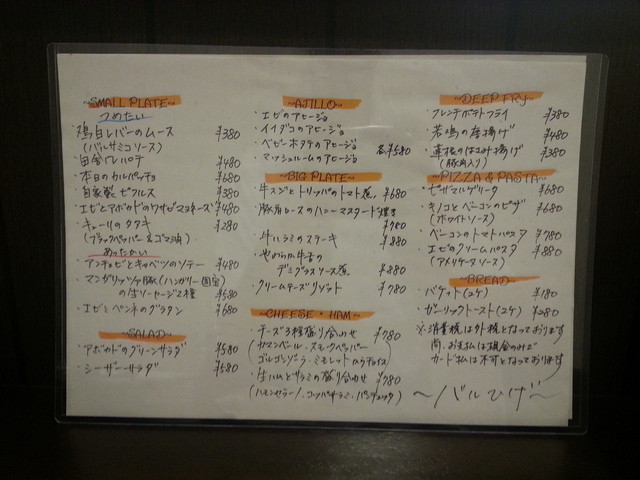 ~SMALL PLATE~
つめたい
・鶏白レバーのムース ¥380
(バルサミコソース)
・田舎パテ ¥480
・本日のカルパッチョ ¥680
・自家製ピクルス ¥380
・エビとアボカドのワサビマヨネーズ ¥480
・キューリのタタキ ¥280
(ブラックペッパー&ゴマ油)
あったかい
・アンチョビとキャベツのソテー ¥480
・マンガリッツァ豚(ハンガリー国宝)
の生ソーセージ2種 ¥580
・エビとペンネのグラタン ¥680
~SALAD~
・アボカドのグリーンサラダ ¥580
・シーザーサラダ ¥580
~AJILLO~
・エビのアヒージョ
・イイダコのアヒージョ
・ベビーホタテのアヒージョ
・マッシュルームのアヒージョ 各¥580
~BIG PLATE~
・牛スジとトリッパのトマト煮 ¥680
・豚肩ロースのハニーマスタード焼き
¥780
・牛ハラミのステーキ ¥880
・やわらか牛舌の
デミグラスソース煮 ¥880
・クリームチーズリゾット ¥780
~CHEESE・HAM~
・チーズ3種盛り合わせ ¥780
(カマンベール・スモークペッパー
ゴルゴンゾーラ・ミモレットからチョイス)
・生ハムとサラミの盛り合わせ ¥780
(ハモンセラーノ・コッパサラミ・パンチェッタ)
~DEEP FRY~
・フレンチポテトフライ ¥380
・若鶏の唐揚げ ¥480
・蓮根のはさみ揚げ ¥380
(豚肉入り)
~PIZZA & PASTA~
・ピザマルゲリータ ¥680
・キノコとベーコンのピザ ¥680
(ホワイトソース)
・ベーコンのトマトパスタ ¥780
・エビのクリームパスタ ¥880
(アメリケーヌソース)
~BREAD~
・バケット(2ケ) ¥180
・ガーリックトースト(2ケ) ¥280
※消費税は外税となっております
尚、お支払は現金のみで
カード払は不可となっております
~バルひげ~